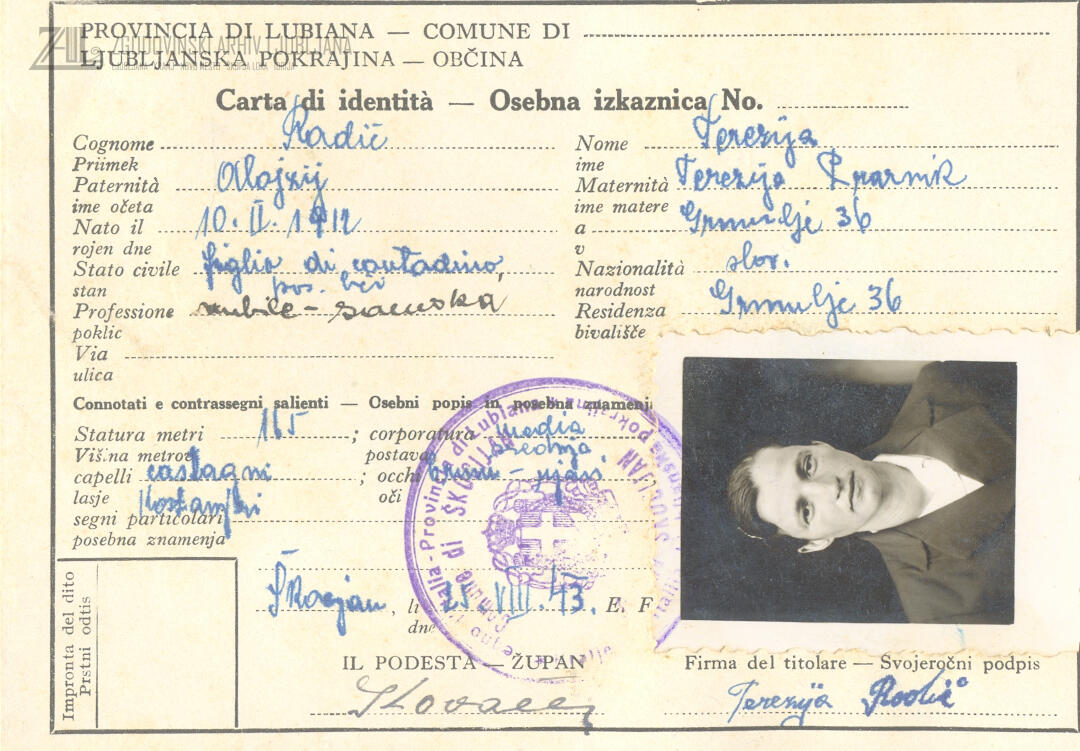 ZGODOVINSKI ARHIV LJUBLJANA
PROVINCIA DI LUBIANA — COMUNE DI
LJUBLJANSKA POKRAJINA — OBČINA
Carta di identità — Osebna izkaznica No.
Cognome Radič
Priimek
Nome Terezija
ime
Paternità Alojzij
ime očeta
Maternità Terezija
ime matere
Nato il 10. II. 1912
rojen dne
a Grmulje 36
v
Stato civile figlia di contadino,
stan pos. hči
Nazionalità slov.
narodnost
Professione nubile - samska
poklic
Residenza Grmulje 36
bivališče
Via
ulica
Connotati e contrassegni salienti — Osebni popis in posebna znamenja
Statura metri 165 ; corporatura media
Viš.na metrov postava srednja
capelli castagni ; occhi bruni - rjavi
lasje kostanjevi oči
segni particolari
posebna znamenja
Impronta del dito
Prstni odtis
Škocjan, li 25. VIII. 43. E. F.
dne
IL PODESTÀ — ŽUPAN
Firma del titolare — Svojeročni podpis
Terezija Radič